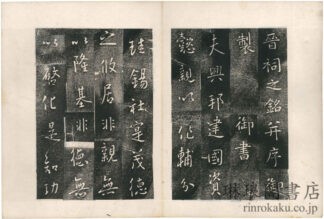 晉祠之銘并序御
製
御書
夫興邦建國資
懿親以作輔分
珪錫社寔茂德
之攸居非親無
以隆基非德無
以啓化是知功
琳琅閣書店
rinrokaku.co.jp